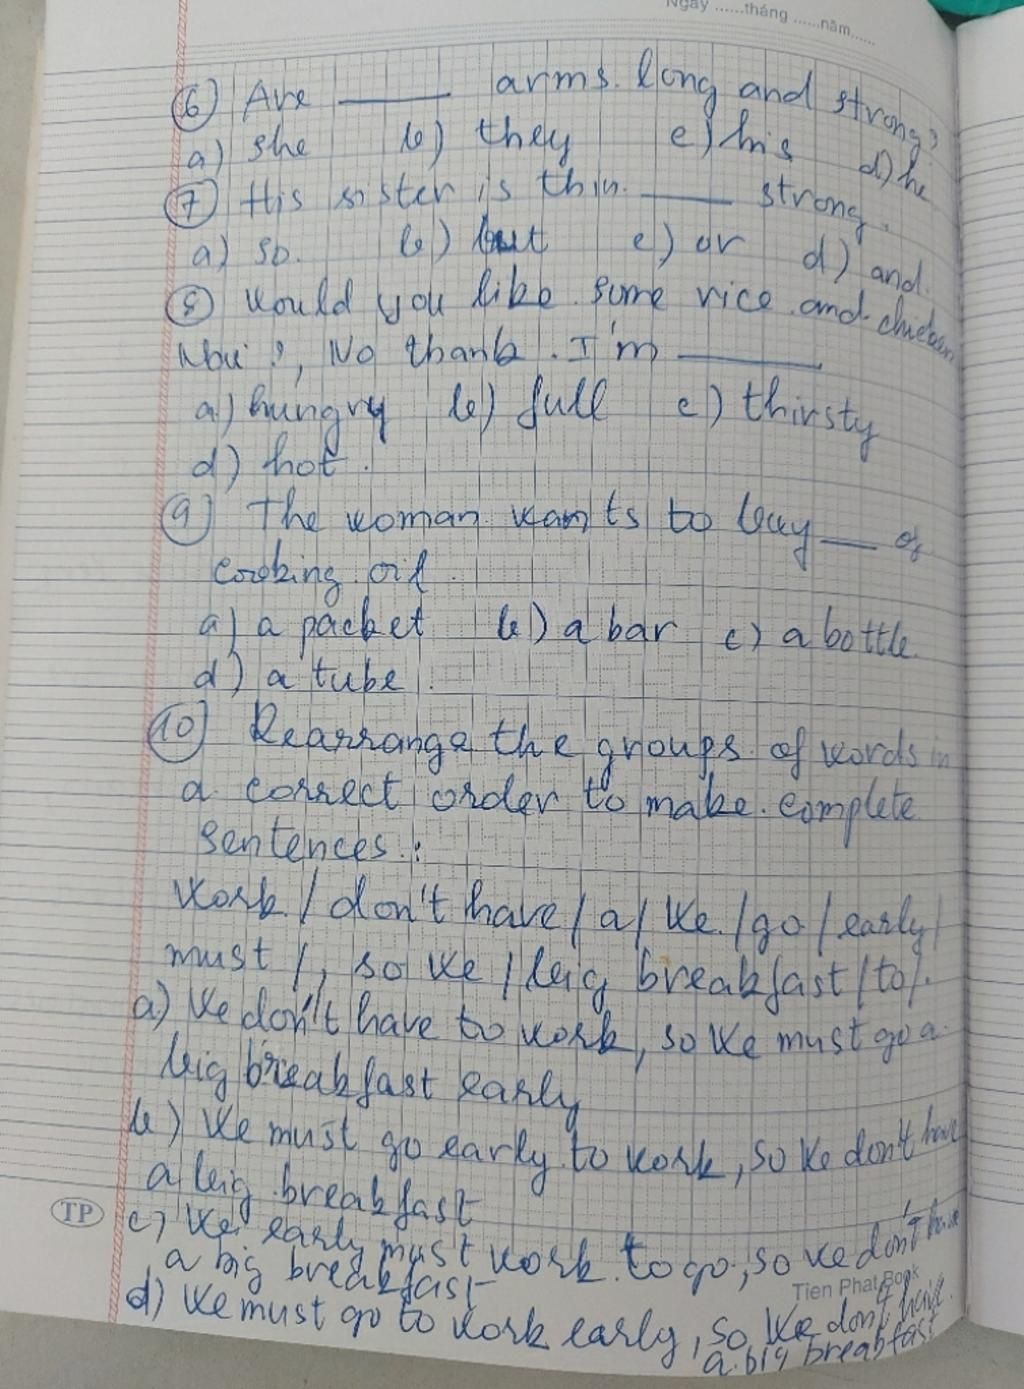 Ngày ......tháng ......năm......
6) Are ______ arms long and strong?
a) she b) they c) his d) he
7) His sister is thin ______ strong.
a) so. b) but c) or d) and.
8) Would you like some rice and chicken
Nou?, No thank. I'm ______
a) hungry b) full c) thirsty
d) hot.
9) The woman wants to buy ___ of
cooking oil.
a) a packet b) a bar c) a bottle
d) a tube.
10) Rearrange the groups of words in
a correct order to make complete
sentences:
work / don't have / a / We / go / early /
must / , so we / big breakfast / to /.
a) We don't have to work, so we must go a
big breakfast early
b) We must go early to work, so we don't have
a big breakfast
c) We early must work to go, so we don't have
a big breakfast
d) We must go to work early, so we don't have
a big breakfast
TP
Tien Phat Book